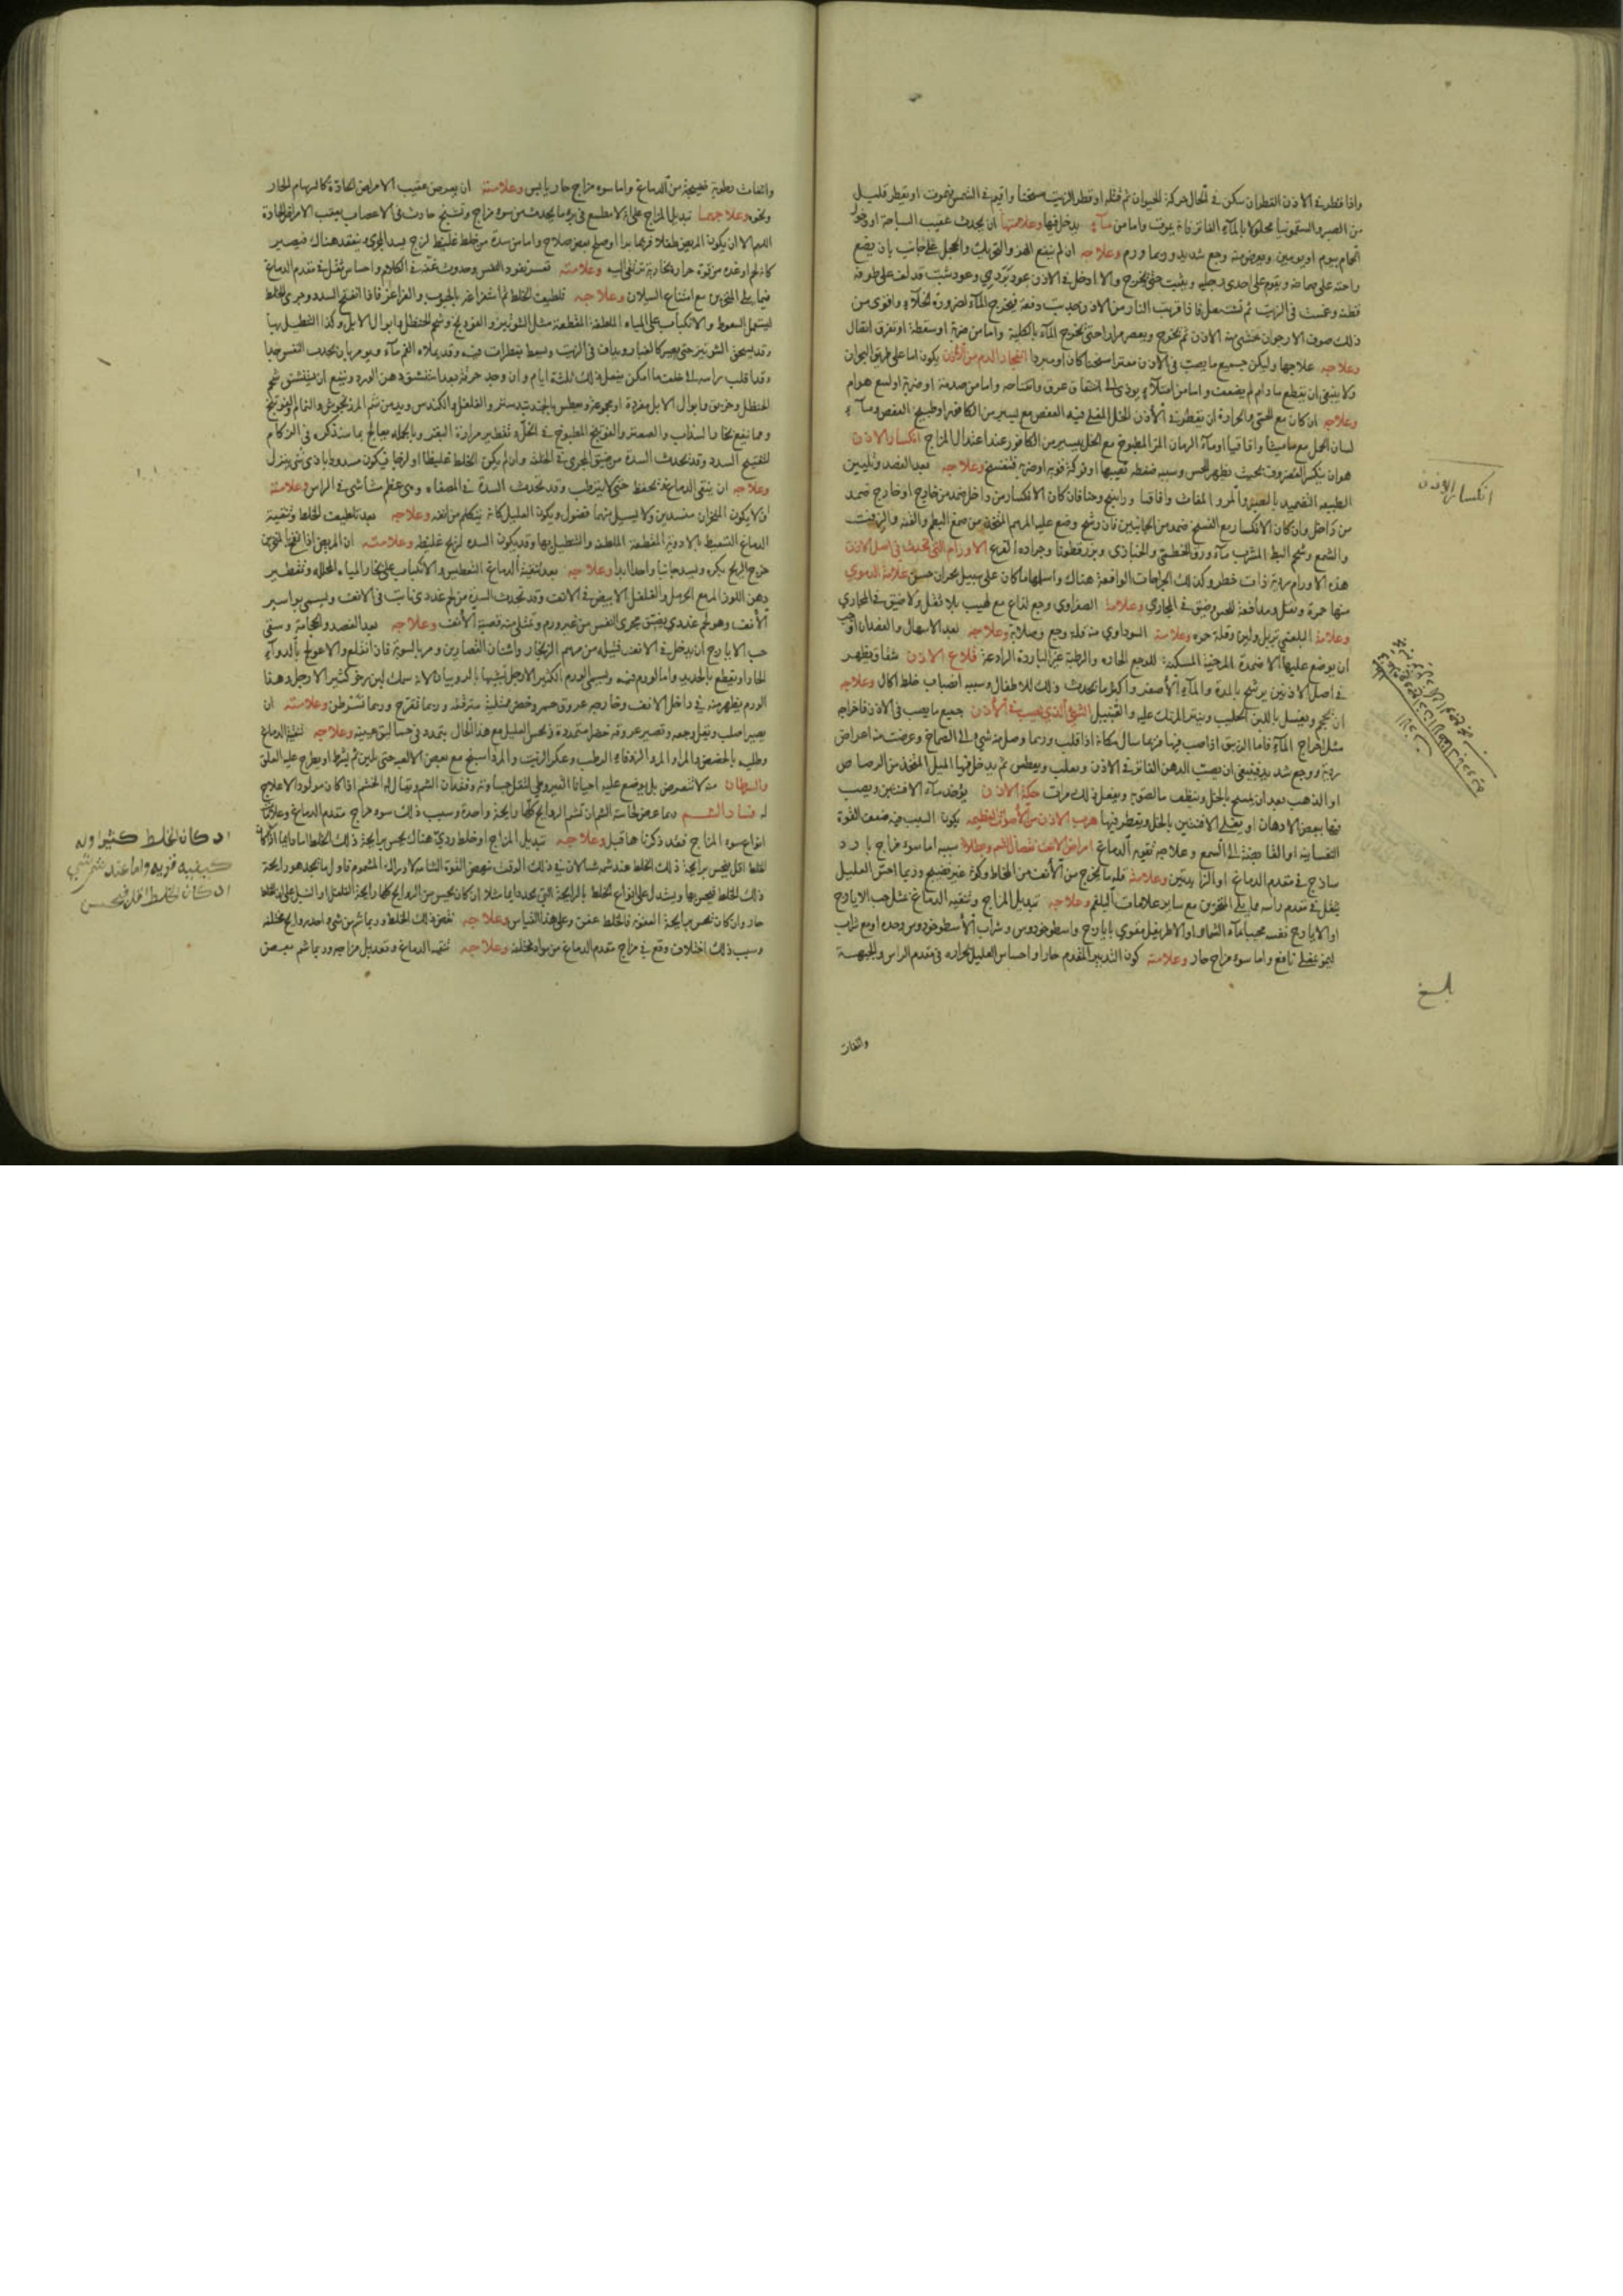 واذا قطر في الاذن القطران سكن في الحال حركة الحيوان ثم قتله او قطر الزيت مسخنا واقيم في الشمس فيموت او يقطر قليل
من الصبر والسقمونيا محلولا بالمآء الفاتر فانه يموت واما من مآء يدخل فيها وعلامتها ان يحدث عقيب السباحة او دخول
الحمام بيوم او يومين ويعرض منه وجع شديد وربما ورم وعلاجه ان لم ينفع الهز والتحريك والحجل على جانب بان يضع
راحته على صماخه ويقوم على احدى رجليه ويثب حتى يخرج والا ادخل في الاذن عود بردي وعود شبت قد لف على طرفه
قطنة وغمست في الزيت ثم تشتعل فاذا قربت النار من الاذن جذبت دفعة فيخرج المآء لضرورة الخلآء واقوى من
ذلك صوف الارجوان يحشى به الاذن ثم يخرج ويعصر مرارا حتى يخرج المآء بالكلية واما من ضربة او سقطة او تفرق اتصال
وعلاجه علاجها وليكن جميع ما يصب في الاذن مفترا سخنا كان او مبردا انفجار الدم من الاذن يكون اما على طريق البحران
ولا ينبغي ان يقطع ما دام لم يضعف واما من امتلآء يودي الى انشقاق عرق وانفتاحه واما من صدمة او ضربة او لسع هوام
وعلاجه ان كان مع الحمى والحرارة ان يقطر في الاذن الخل المغلي فيه العفص مع يسير من الكافور او طبيخ العفص ومآء
لسان الحمل مع ماميثا واقاقيا او مآء الرمان المز المطبوخ مع الخل بيسير من الكافور عند اعتدال المزاج انكسار الاذن
هو ان ينكسر الغضروف بحيث يظهر للحس وسببه ضغطة تصيبها او فركة قوية او ضربة فتفسخ وعلاجه بعد الفصد وتليين
الطبيعة التضميد بالصبر والمر والمغاث واقاقيا وراينج وحنا فان كان الانكسار من داخل ضمد من خارج او خارج ضمد
من داخل وان كان الانكسار مع الفسخ ضمد من الجانبين فان رشح وضع عليه المرهم المتخذ من صمغ البطم والقنة والزفت
والشمع وشحم البط المشرب مآء ورق الخطمي والخبازى وبزر قطونا وجرادة القرع الاورام التي تحدث في اصل الاذن
هذه الاورام ردية ذات خطر وكذلك الخراجات الواقعة هناك واسلمها ما كان على سبيل بحران حسن علامة الدموي
منها حمرة وثقل ومدافعة للحس وضيق في المجاري وعلامة الصفراوي وجع لذاع مع لهيب بلا ثقل ولا ضيق في المجاري
وعلامة البلغمي تربل ولين وقلة حره وعلامة السوداوي منه قلة وجع وصلابة وعلاجه بعد الاسهال والفصد ان اوجب
ان يوضع عليها الاضمدة المرخية المسكنة للوجع الحارة والرطبة غير الباردة الرادعة قلاع الاذن شقاق يظهر
في اصل الاذنين يرشح بالمدة والمآء الاصفر واكثر ما يحدث ذلك للاطفال وسببه انصباب خلط اكال وعلاجه
ان يحجم ويغسل باللبن الحليب وينثر المرتك عليه والقنبيل الشيء الذي يصب في الاذن جميع ما يصب في الاذن فاخراجه
مثل اخراج المآء فاما الزيبق اذا صب فيها فربما سال مكانه اذا قلب وربما وصل منه شي الى الصماخ وعرضت منه اعراض
ردية ووجع شديد فينبغي ان يصب الدهن الفاتر في الاذن ويقلب ويعطس ثم يدخل فيها الميل المتخذ من الرصاص
او الذهب بعد ان يمسح بالخل وينظف مالصق به ويفعل ذلك مرات حكة الاذن يؤخذ مآء الافسنتين ويصب
فيها ببعض الادهان او يغلى الافسنتين بالخل ويقطر فيها هرب الاذن من الاصوات العظيمة يكون السبب فيه ضعف القوة
النفسانية او الفايضة الى السمع وعلاجه تقوية الدماغ امراض الانف نقصان الشم وبطلانه سببه اما سوء مزاج بارد
ساذج في مقدم الدماغ او الزايدتين وعلامته قلة ما يخرج من الانف من المخاط وكونه غير نضيج وربما احس العليل
بثقل في مقدم راسه مما يلي المنخرين مع ساير علامات البلغم وعلاجه تبديل المزاج وتنقية الدماغ بمثل حب الايارج
او الايارج نفسه محببا بمآء الشمار او الاطريفل مقوي بايارج واسطوخودوس وشراب الاسطوخودوس وحده او مع شراب
ليمو عنصلي نافع واما سوء مزاج حار وعلامته كون التدبير المقدم حارا واحساس العليل بحرارة في مقدم الراس والجبهة
والفات
انكسار الاذن
بلغ
وانفاث رطوبة فضيجة من الدماغ واما سوء مزاج حار يابس وعلامته ان يعرض عقيب الامراض الحادة كالبرسام الحار
ونحوه وعلاجهما تبديل المزاج على انه لا مطمع في برء ما يحدث من سوء مزاج وتشنج حادث في الاعصاب بعقب الامراض الحادة
اللهم الا ان يكون المريض طفلا فربما برا او صلح بعض صلاح واما من سدة من خلط غليظ لزج يسد المجرى ينعقد هناك فيصير
كانه لحم او غدة من قوة حرارة بخارية ترتفع اليه وعلامته تعسر نفوذ النفس وحدوث غنة في الكلام واحساس بثقل في مقدم الدماغ
فيما يلي المنخرين مع امتناع السيلان وعلاجه تلطيف الخلط ثم استفراغه بالحبوب والغراغر فاذا انفتح السدد وجرى الخلط
ليستعمل السعوط والانكباب على المياه الملطفة المقطعة مثل الشونيز والفودنج وشحم الحنظل وابوال الابل وكذا التنطيل بها
وقد يسحق الشونيز حتى يصير كالغبار ويداف في الزيت ويسعط بقطرات منه وقد يملاء الفم مآء ويومر بان يجذب النفس جيدا
وقد اقلب راسه الى خلف ما امكن يفعل ذلك ثلثة ايام وان وجد حرقة بعد استنشق دهن الورد وينفع ان يستنشق شحم
الحنظل وخربق وابوال الابل مفردة او مجموعة ويعطس بالجندبيدستر والفلفل والكندس ويدمن شم المرزنجوش والنمام والفوتنج
ومما ينفع بخار السذاب والصعتر والفوتنج المطبوخ في الخل وتقطير مرارة البقر وبالجملة يعالج بما سنذكره في الزكام
لتفتيح السدد وقد تحدث السدة من ضيق المجرى في الخلقة وان لم يكن الخلط غليظا او لزجا فيكون مسدودا بادنى شي ينزل
وعلاجه ان ينقى الدماغ ويحفظ حتى لا يترطب وقد تحدث السدة في المصفاة وهي عظم مشاشي في الراس وعلامته
ان لا يكون المنخران منسدين ولا يسيل منهما فضول ويكون العليل كانه يتكلم من انفه وعلاجه بعد تلطيف الخلط وتنقية
الدماغ التسعيط بالادوية المقطعة الملطفة والتنطيل بها وقد يكون السدة لريح غليظة وعلامته ان المريض اذا نفخ المنخرين
خرج الريح بكره ويسد جانبا واحدا ابدا وعلاجه بعد تنقية الدماغ التعطيس والانكباب على بخار المياه المحللة وتقطير
دهن اللوز المر مع الحرمل والفلفل الابيض في الانف وقد تحدث السدة من لحم غددي نابت في الانف ويسمى بواسير
الانف وهو لحم غددي يضيق مجرى النفس من غير ورم وتمتلي منه قصبة الانف وعلاجه بعد الفصد والحجامة وسقي
حب الايارج ان يدخل في الانف فتيلة من مرهم الزنجار واشنان القصارين ومر بالسوية فان انقلع والا عولج بالدوآء
الحار او يقطع بالحديد واما الورم فيه ويسمى الورم الكثير الارجل تشبيها بالروبيان لانه سمك لين رخو كثير الارجل وهذا
الورم يظهر منه في داخل الانف وخارجه عروق حمر وخضر ممتلية مترقة وربما تقرح وربما تسرطن وعلامته ان
يصير اصلب ويقل وجعه وتصير عروقه خضرا متمددة ويحس العليل مع هذا الحال بتمدد في حسا لبق هيبه وعلاجه تنقية الدماغ
وطليه بالحضض والمر والزوفا الرطب وعكر الزيت
والسرطان منه لا يتعرض بل يوضع عليه احيانا القيروطي لتقل جساوته وفقدان الشم ويقال له الخشم اذا كان مولودا لا علاج
له فساد الشم ربما عرض لحاسة الشم ان تشم الروايح كلها رايحة واحدة وسبب ذلك سوء مزاج مقدم الدماغ وعلامة
انواع سوء المزاج فقد ذكرناها قبل وعلاجه تبديل المزاج او خلط ردي هناك يحس برايحة ذلك الخلط اما دايما اذا كان
الخلط اقل فيحس برايحة ذلك الخلط عند شمه شيا لان في ذلك الوقت ينهض القوة الشامة لادراك المشموم فاول ما تجد هو رايحة
ذلك الخلط فيحس بها ويستدل على انواع الخلط بالرايحة التي يجدها دايما مثلا ان كان يحس من الروايح كلها رايحة الفلفل او السنبل علم ان الخلط
حار وان كان يحس برايحة العفونة فالخلط عفن وعلى هذا القياس وعلاجه نفض ذلك الخلط وربما شم من شي واحد روايح مختلفة
وسبب ذلك اختلاف وقع في مزاج مقدم الدماغ من مواد مختلفة وعلاجه تنقية الدماغ وتعديل مزاجه وربما شم بعض
ان كان الخلط كثيرا وله
كيفية قوية واما عند شم شي
ان كان الخلط اقل فيحس